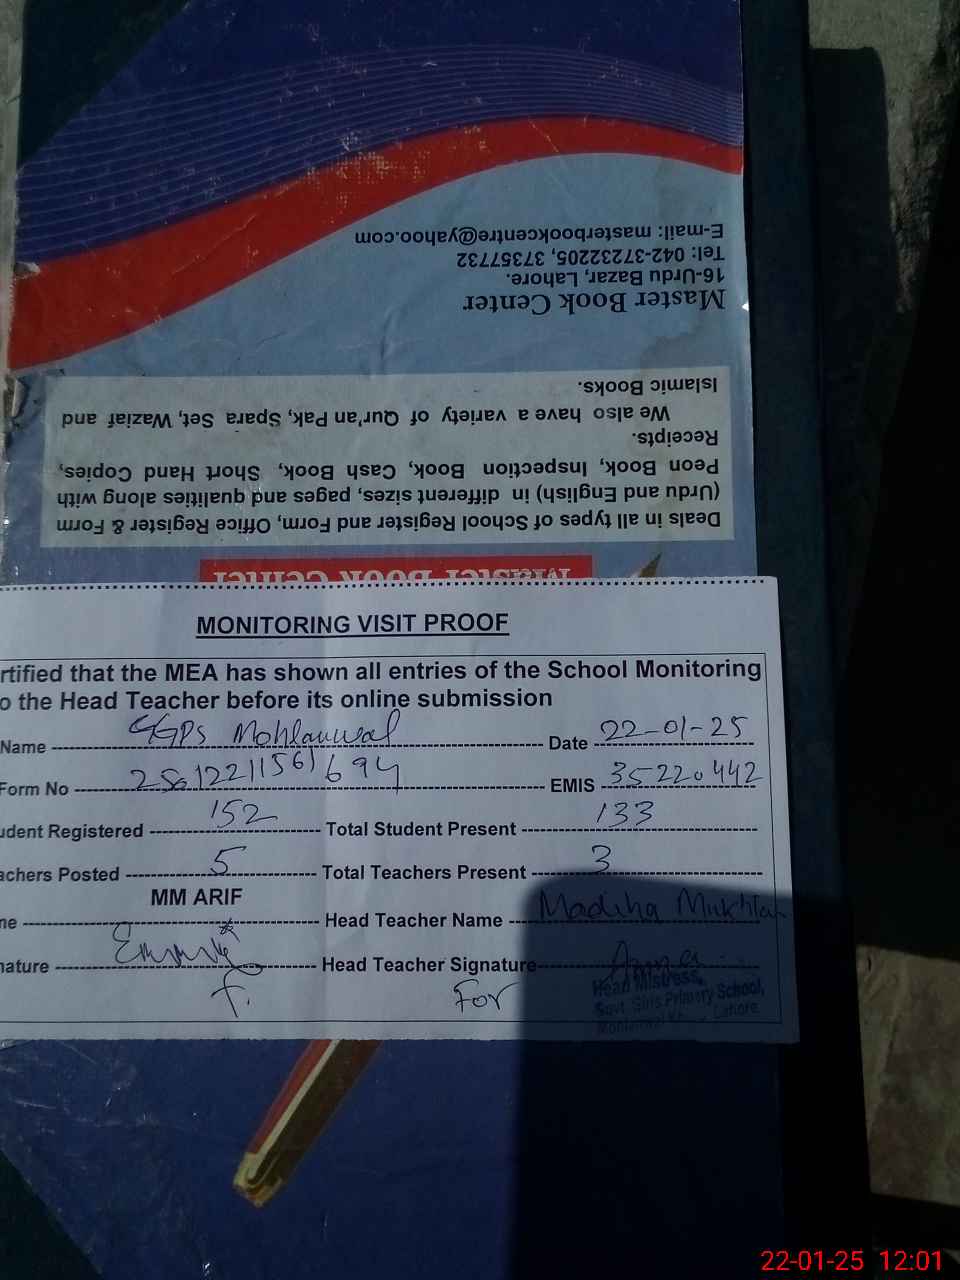 E-mail: masterbookcentre@yahoo.com
Tel: 042-37232205, 37357732
16-Urdu Bazar, Lahore.
Master Book Center
Islamic Books.
We also have a variety of Qur'an Pak, Spara Set, Waziaf and
Receipts.
Peon Book, Inspection Book, Cash Book, Short Hand Copies,
(Urdu and English) in different sizes, pages and qualities along with
Deals in all types of School Register and Form, Office Register & Form
Master Book Center
MONITORING VISIT PROOF
rtified that the MEA has shown all entries of the School Monitoring
o the Head Teacher before its online submission
Name GGPS Mohlanwal Date 22-01-25
Form No EMIS 35220442
udent Registered 152 Total Student Present 133
achers Posted 5 Total Teachers Present 3
MM ARIF
ne Head Teacher Name Madiha Mukhtar
nature Head Teacher Signature
For
Head Mistress,
Govt. Girls Primary School,
Lahore
22-01-25 12:01